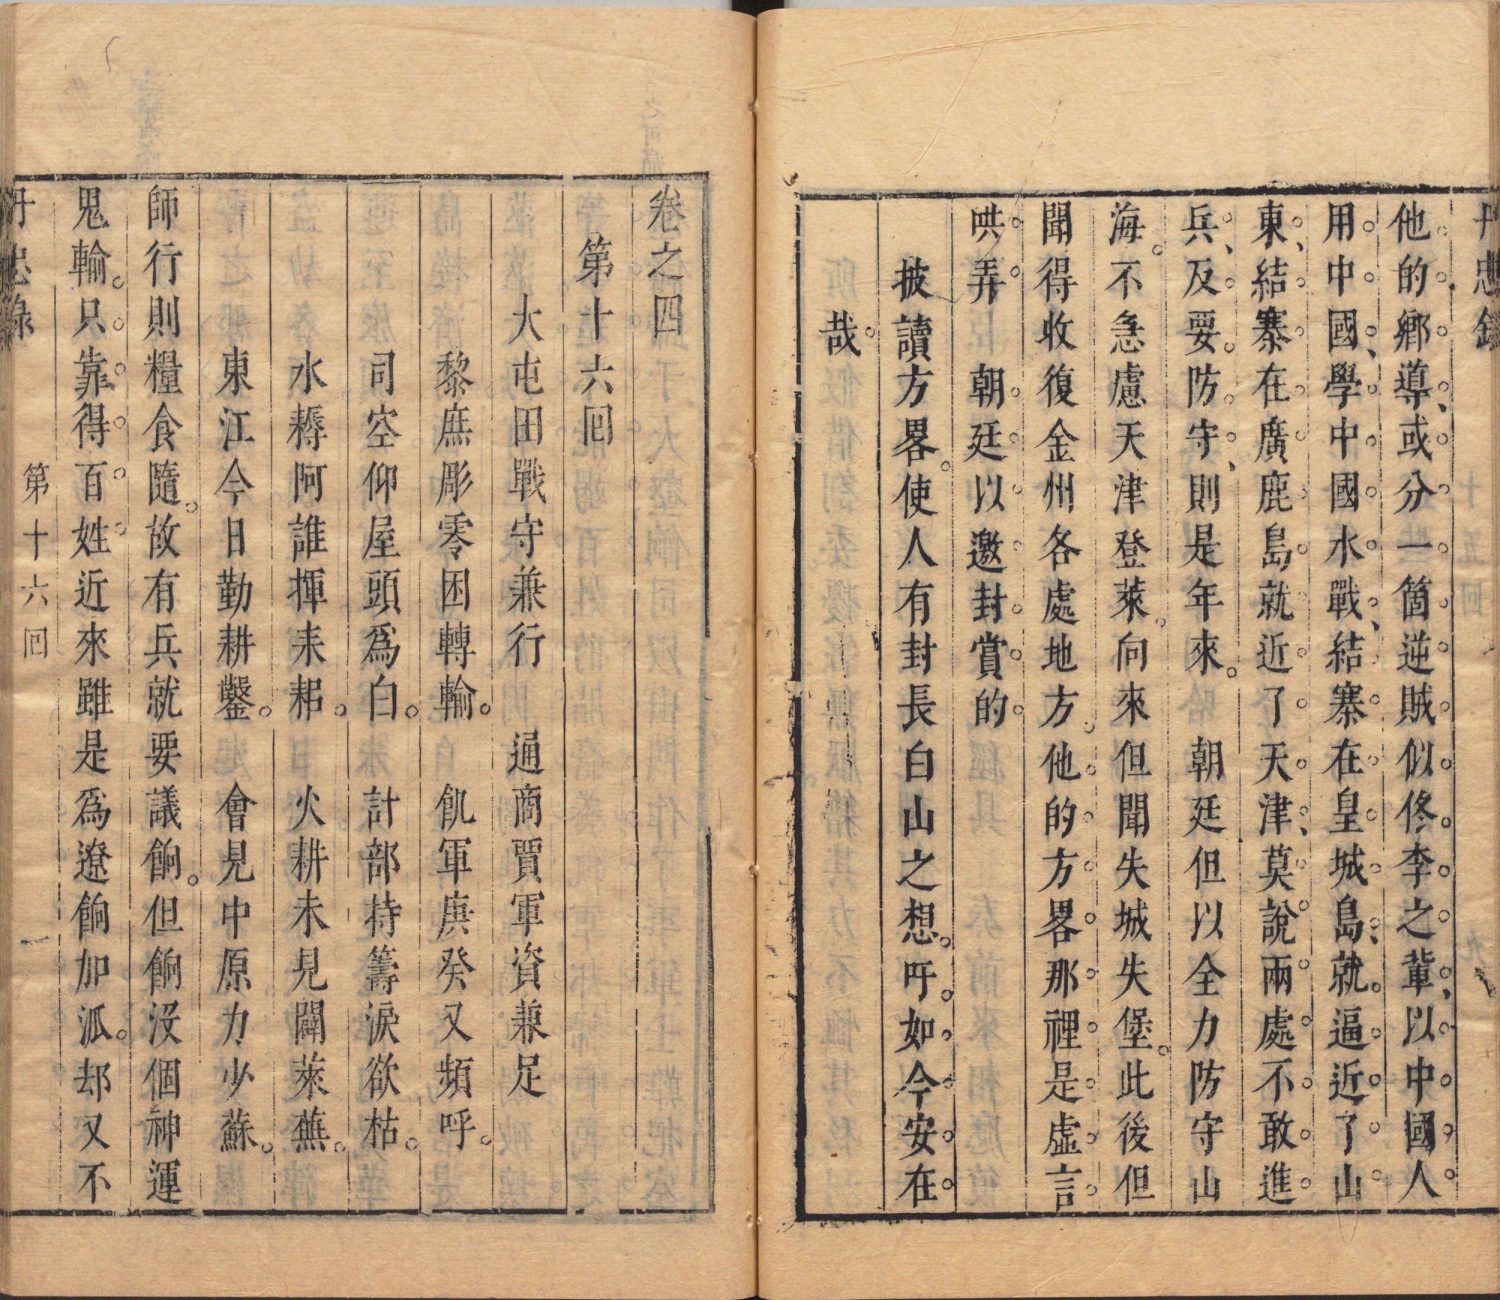 丹忠錄
他的鄉導、或分一箇逆賊似佟李之輩、以中國人
用中國、學中國水戰、結寨在皇城島、就逼近了山
東、結寨在廣鹿島就近了天津、莫說兩處不敢進
兵、反要防守、則是年來。朝廷但以全力防守山
海。不急慮天津登萊。向來但聞失城失堡。此後但
聞得收復金州各處地方。他的方畧那裡是虛言
哄弄　朝廷以邀封賞的
披讀方畧。使人有封長白山之想。吁。如今安在
哉。
卷之四
第十六回
大屯田戰守兼行　通商賈軍資兼足
黎庶彫零困轉輸。　飢軍庚癸又頻呼。
司空仰屋頭爲白。　計部持籌淚欲枯。
水耨阿誰揮耒耜。　火耕未見闢萊蕪。
東江今日勤耕鑿。　會見中原力少蘇。
師行則糧食隨。故有兵就要議餉。但餉沒個神運
鬼輸。只靠得百姓。近來雖是爲遼餉加派。却又不
丹忠錄
第十六回
一